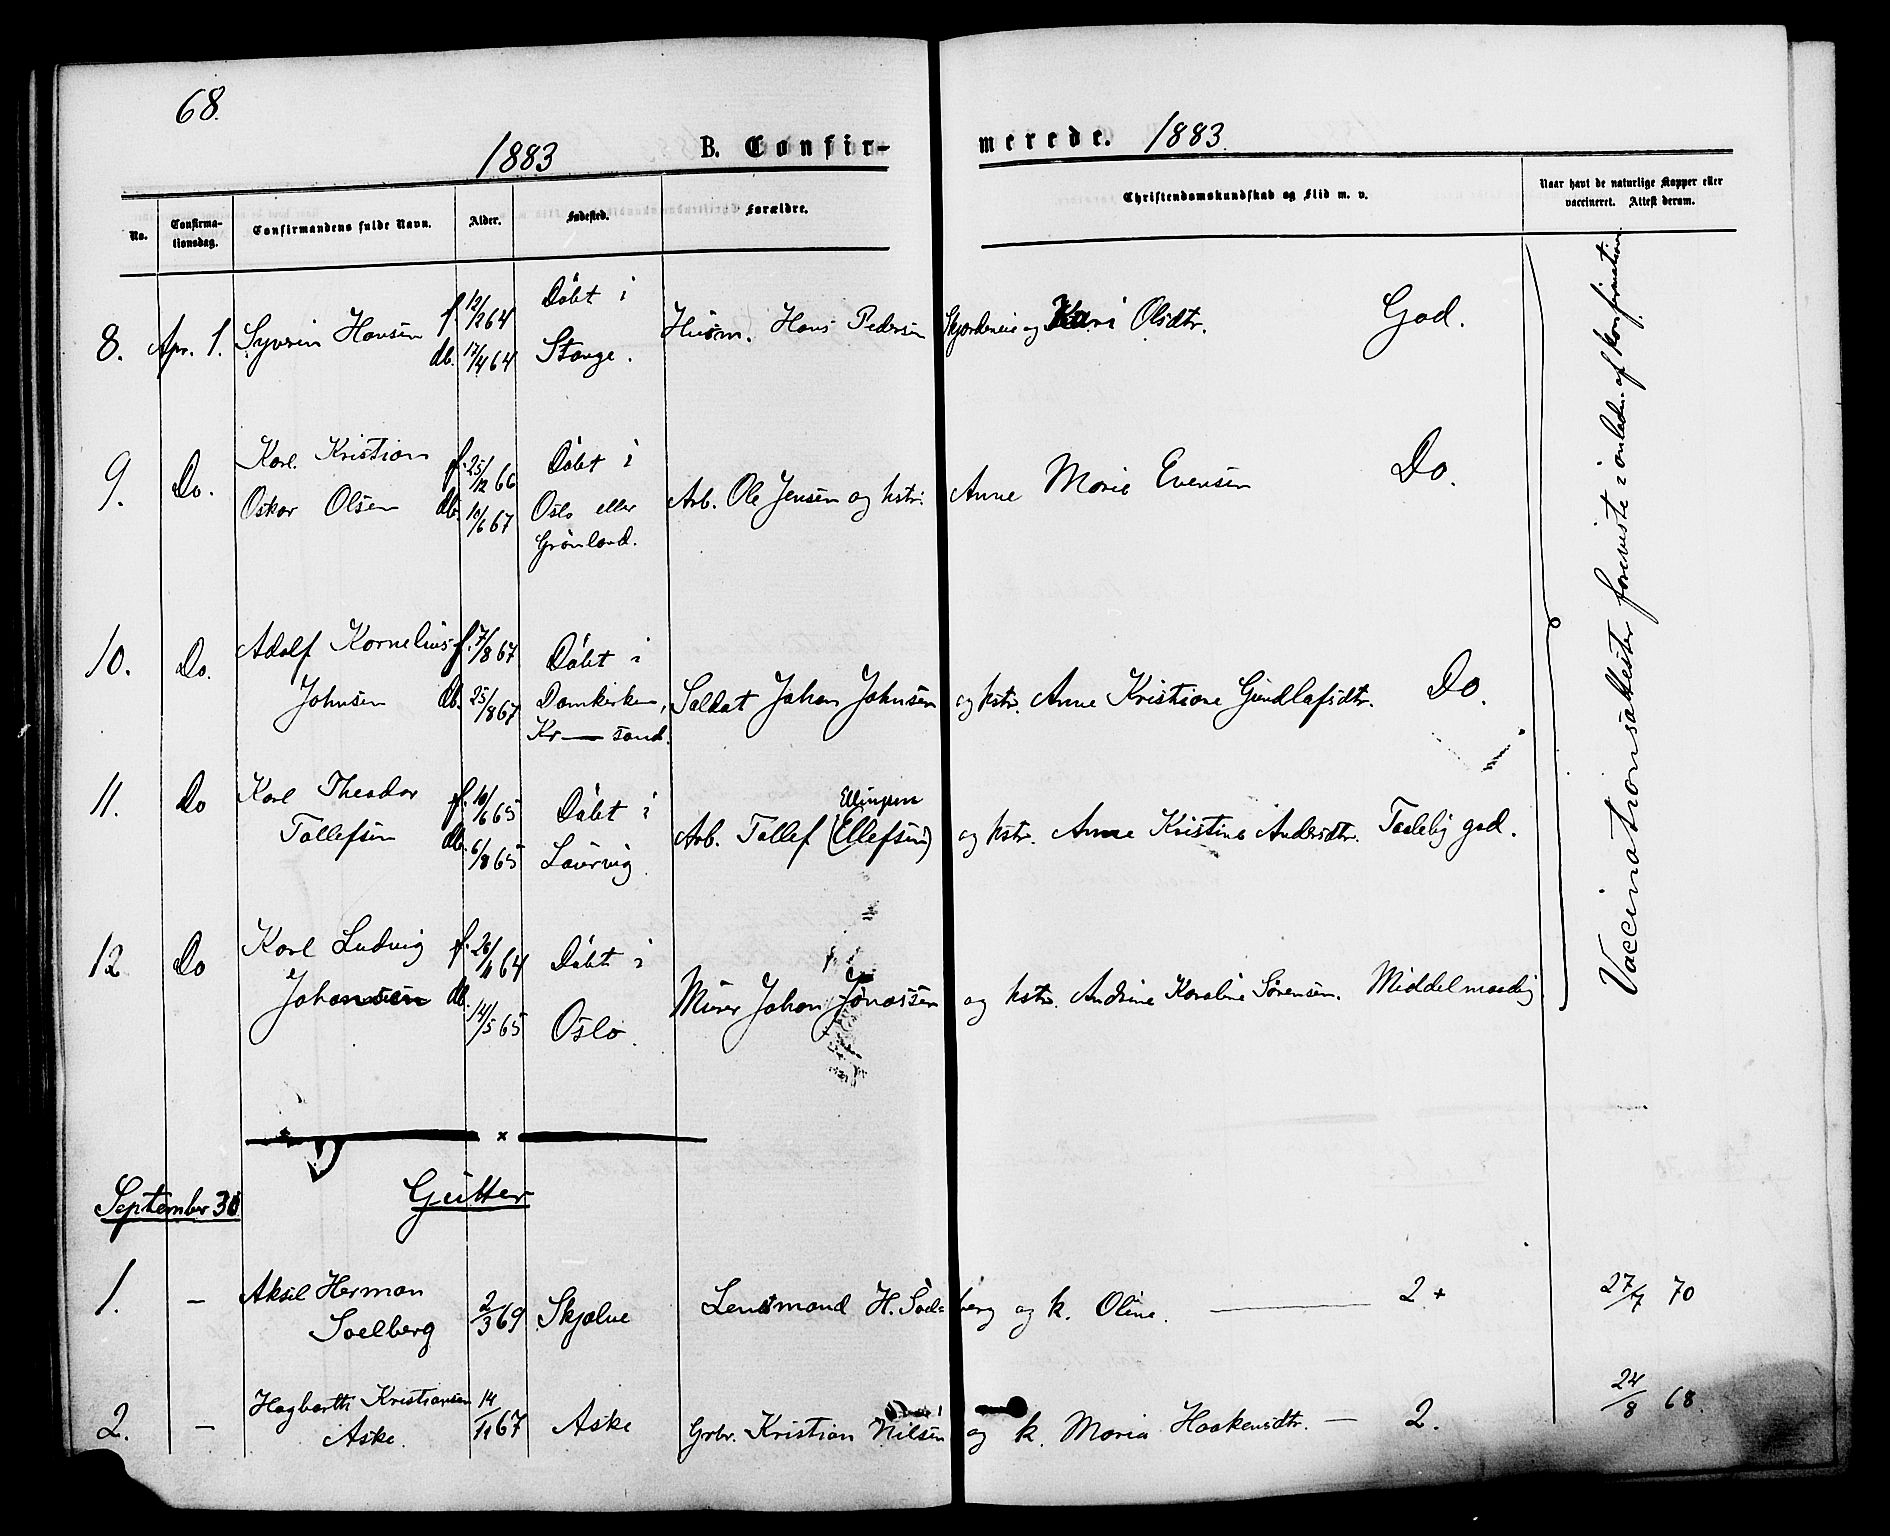 68.
1883 B. Confir- merede. 1883.
No. Confirma-tionsdag. Confirmandens fulde Navn. Alder. Fødested. Forældre. Christendomskundskab og Flid m. v. Naar havt de naturlige Kopper eller vaccineret. Attest derom.
8. Apr. 1. Syverin Hansen f. 12/2 64 Døbt i Husm. Hans Pedersen og Kari Olsdtr. God.
db. 17/4 64 Stange.
9. Do. Karl Kristian f. 25/12 66 Døbt i Arb. Ole Jensen og kstr. Anne Marie Evensen Do.
Oskar Olsen db. 10/6 67 Oslo eller
Grønland.
10. Do. Adolf Kornelius f. 7/8 67 Døbt i Soldat Johan Johnsen og kstr. Anne Kristiane Gundlafsdtr. Do.
Johnsen db. 25/8 67 Domkirken,
Kr — sand.
11. Do Karl Theodor f. 10/6 65 Døbt i Ellingsen
Tollefsen db. 6/8 65 Laurvig. Arb. Tollef (Ellefsen) og kstr. Anne Kristine Andersdtr. Taalelig god.
12 Do Karl Ludvig f. 26/11 64 Døbt i Murer Johan Jonassen og kstr. Andrine Karoline Sørensen. Middelmaadig
Johansen db. 14/5 65 Oslo.
Vaccinationsattester foreviste i anledn. af konfirmation.
September 30 Gutter
1. — Aksel Herman 2/3 69 Skjølne Lensmand H. Soelberg og k. Oline. — 2+ 27/7 70
Soelberg
2. — Hagbarth Kristiansen 14/11 67 Aske Grbr. Kristian Nilsen og k. Maria Haakensdtr. — 2. 24/8 68.
Aske.